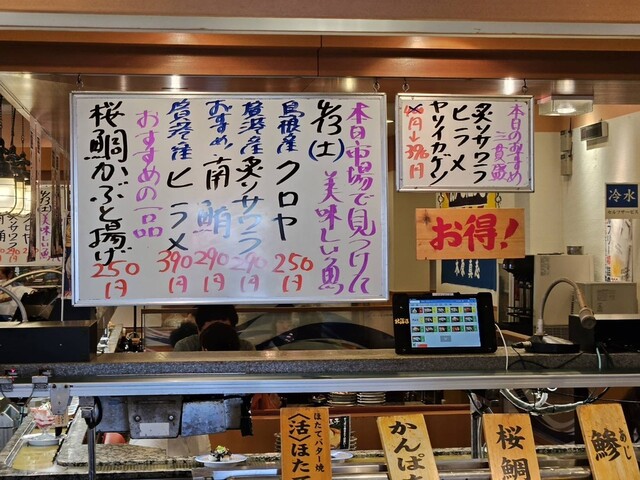 本日市場で見つけた
美味しい魚
4/3(土)
島根産
クロヤ
250円
貿港産
炙りサワラ
290円
おすすめ!
南鮪
290円
貿港産
ヒラメ
390円
おすすめの一品
桜鯛かぶと揚げ
250円
本日のおすすめ
三貫盛
炙りサワラ
ヒラメ
ヤリイカゲソ
お得!
冷水
ほたてバター焼
〈活〉ほた
かんぱ
桜鯛
あじ
鯵